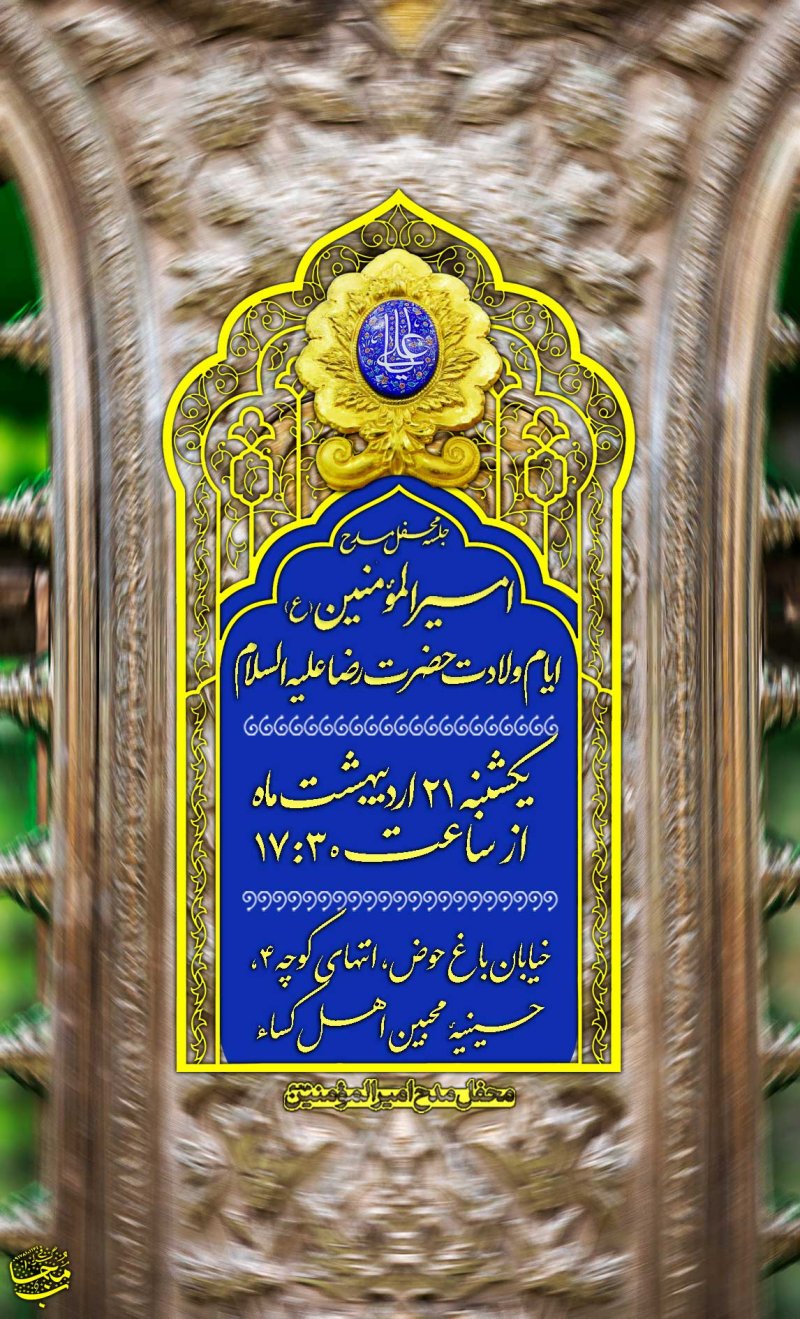 علی
جلسه محفل مدح
امیرالمؤمنین (ع)
ایام ولادت حضرت رضا علیه السلام
یکشنبه ۲۱ اردیبهشت ماه
از ساعت ۱۷:۳۰
خیابان باغ حوض، انتهای کوچه ۴،
حسینیهٔ محبین اهل کساء
محفل مدح امیرالمؤمنین